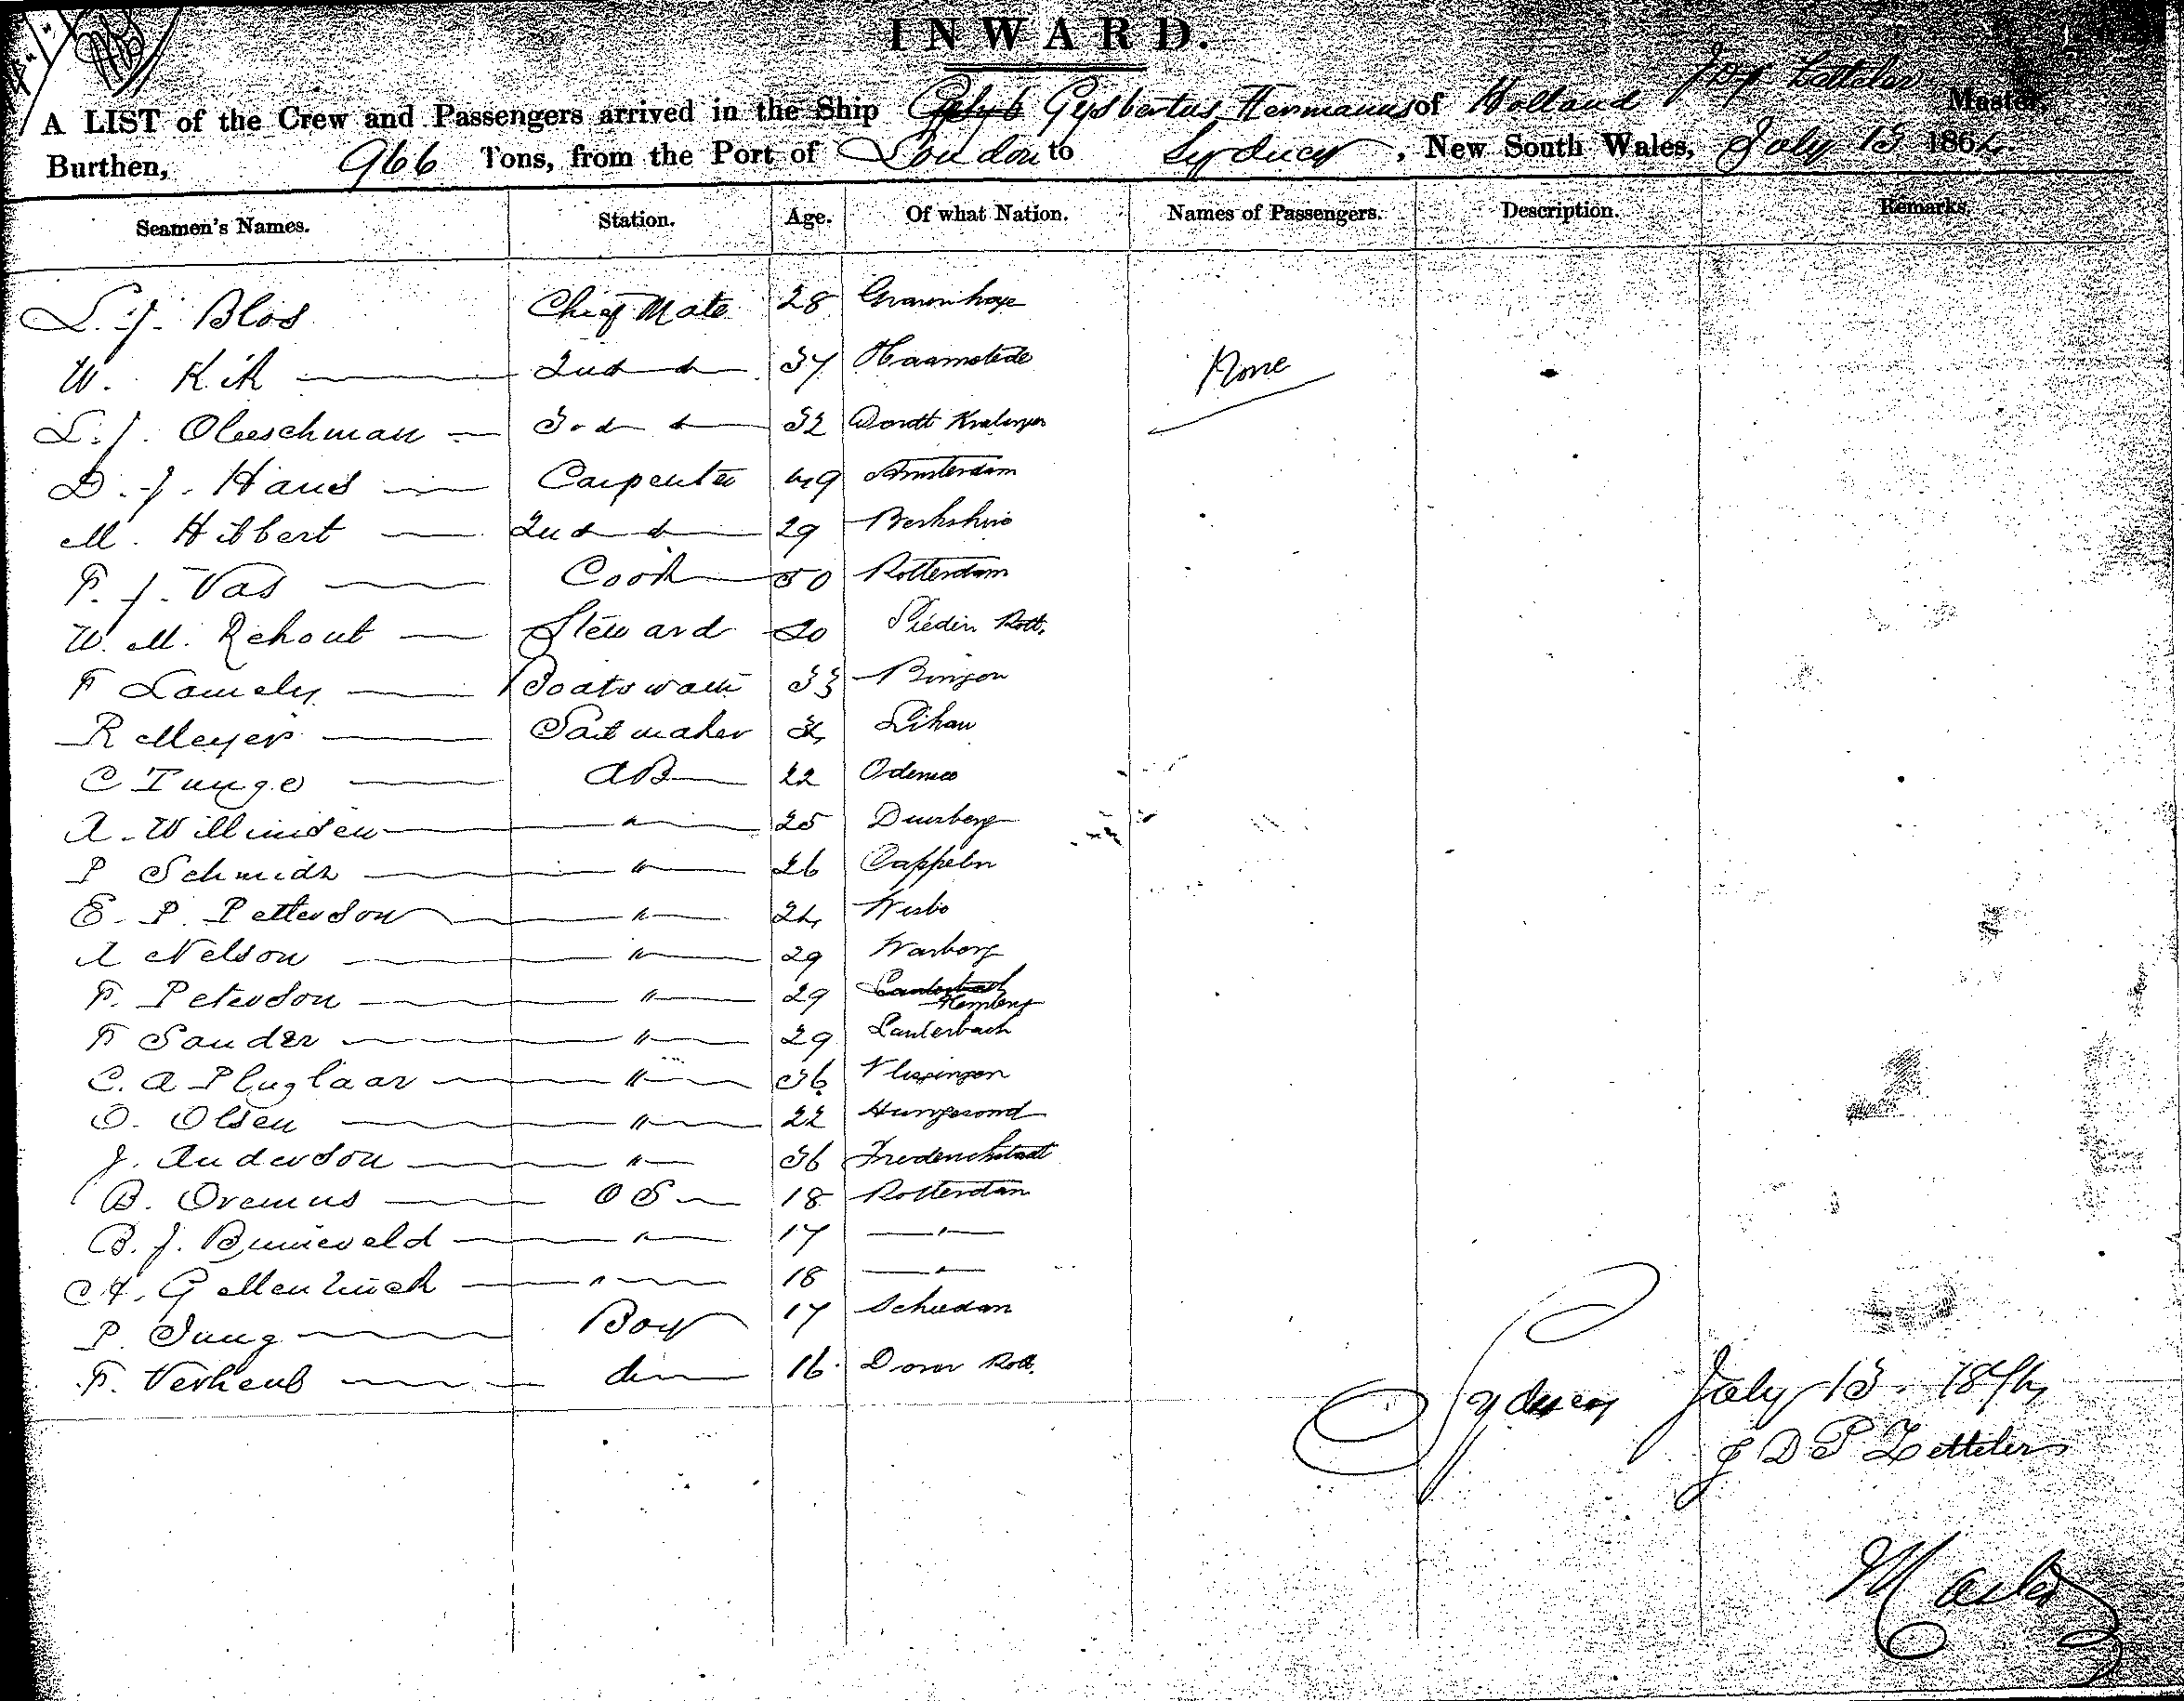 INWARD.
A LIST of the Crew and Passengers arrived in the Ship Gysbertus Hermanus of Holland Master,
Burthen, 966 Tons, from the Port of London to Sydney, New South Wales, July 13 186
Seamen's Names. Station. Age. Of what Nation. Names of Passengers. Description. Remarks.
L. J. Blos Chief Mate 28 Gravenhage
W. Kik 2nd do 37 Haamstede None
L. J. Oleeschman 3rd do 32
D. J. Hans Carpenter 49 Amsterdam
M. Hibbert 2nd do 29 Berkshire
P. J. Vas Cook 50 Rotterdam
W. M. Rehout Steward 20 Rott.
F Lamely Boatswain 33 Bingen
R Meyer Sailmaker Libau
C Tunge AB 22 Odense
A. Willimsen " 25
P Schmidt " 26 Cappeln
E. P. Petterson " 24 Wisbo
A Nelson " 29 Warborg
F. Peterson " 29 Lauterbach
F Sander " 29 Lauterbach
C. A Pluglaar " 36 Vlissingen
O. Olsen " 22
J. Anderson " 36 Frederichstadt
B. Oremus O S 18 Rotterdam
B. J. Bunieveld " 17 "
C. H. " 18 "
P. Jung Boy 17 Schiedam
F. Verheul do 16 Rott.
Sydney July 13. 187
J D P Zetteler
Master